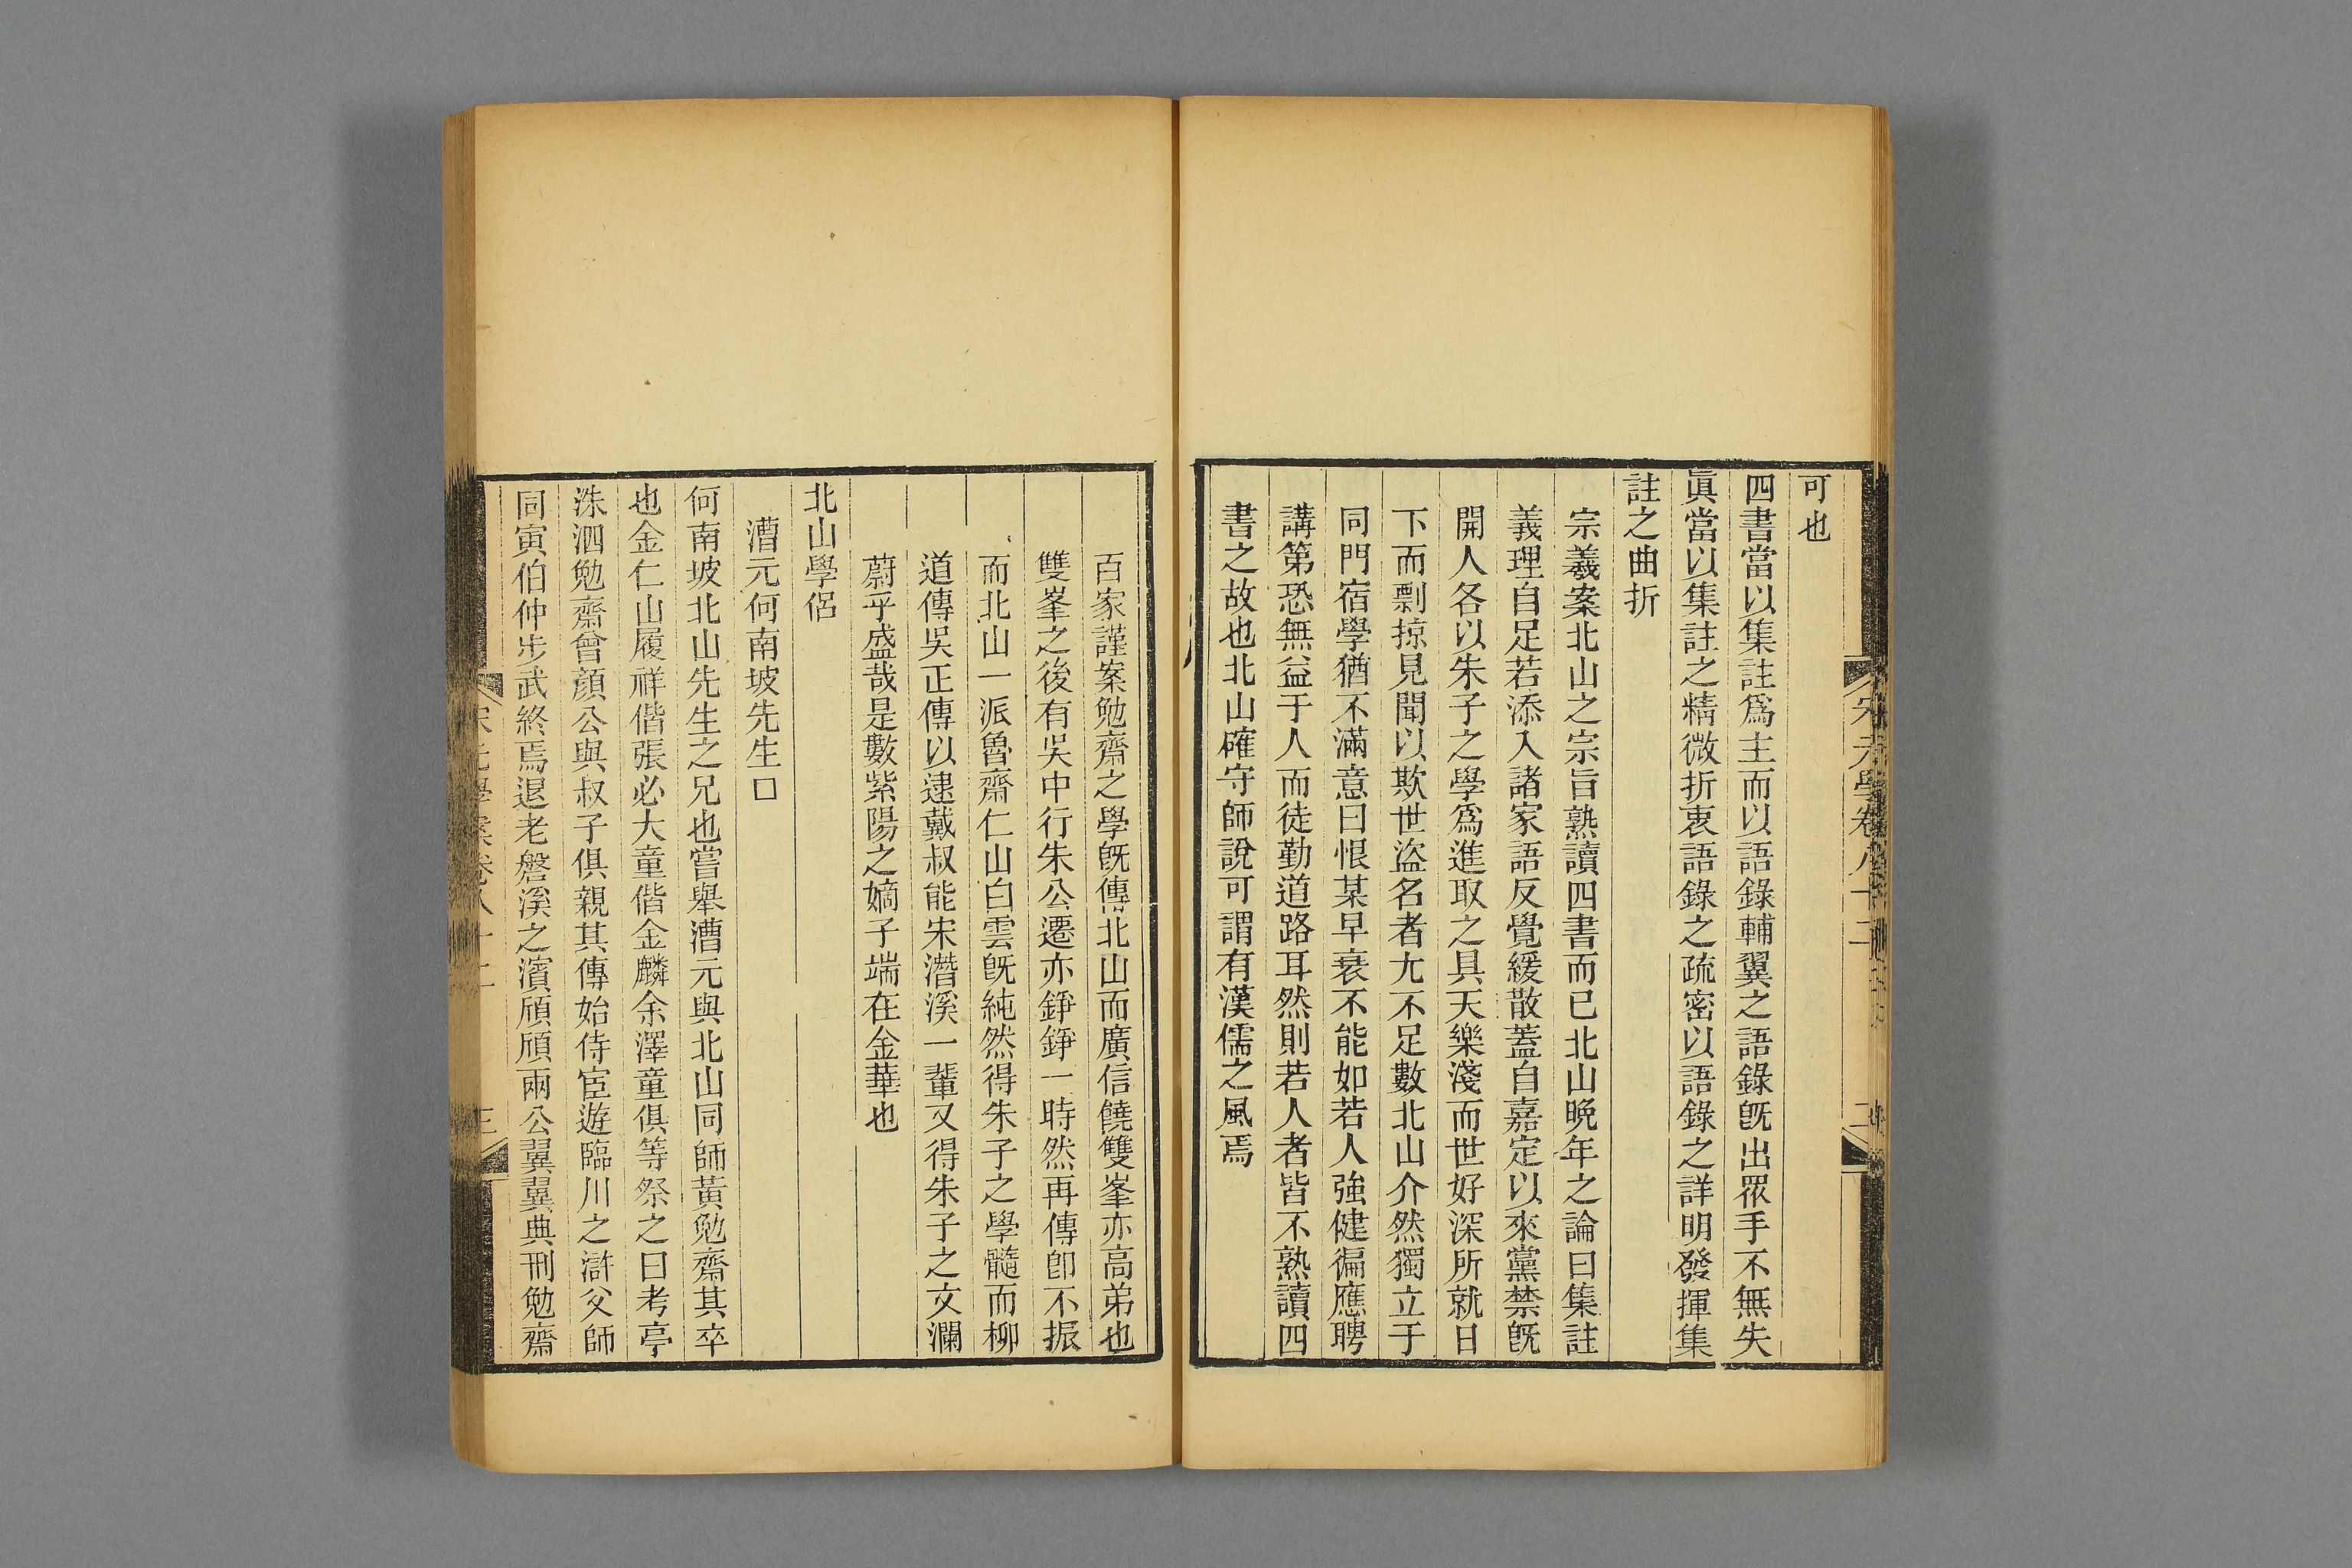 可也
四書當以集註爲主而以語錄輔翼之語錄旣出眾手不無失
眞當以集註之精微折衷語錄之疏密以語錄之詳明發揮集
註之曲折
宗羲案北山之宗旨熟讀四書而已北山晚年之論曰集註
義理自足若添入諸家語反覺緩散蓋自嘉定以來黨禁旣
開人各以朱子之學爲進取之具天樂淺而世好深所就日
下而剽掠見聞以欺世盜名者尢不足數北山介然獨立于
同門宿學猶不滿意曰恨某早衰不能如若人強健徧應聘
講第恐無益于人而徒勤道路耳然則若人者皆不熟讀四
書之故也北山確守師說可謂有漢儒之風焉
百家謹案勉齋之學旣傳北山而廣信饒雙峯亦高弟也
雙峯之後有吳中行朱公遷亦錚錚一時然再傳卽不振
而北山一派魯齋仁山白雲旣純然得朱子之學髓而柳
道傳吳正傳以逮戴叔能宋潛溪一輩又得朱子之文瀾
蔚乎盛哉是數紫陽之嫡子端在金華也
北山學侶
漕元何南坡先生口
何南坡北山先生之兄也嘗舉漕元與北山同師黃勉齋其卒
也金仁山履祥偕張必大童偕金麟余澤童俱等祭之曰考亭
洙泗勉齋曾顏公與叔子俱親其傳始侍宦遊臨川之滸父師
同寅伯仲步武終焉退老磐溪之濱頎頎兩公翼翼典刑勉齋
宋元學案卷八十二
三